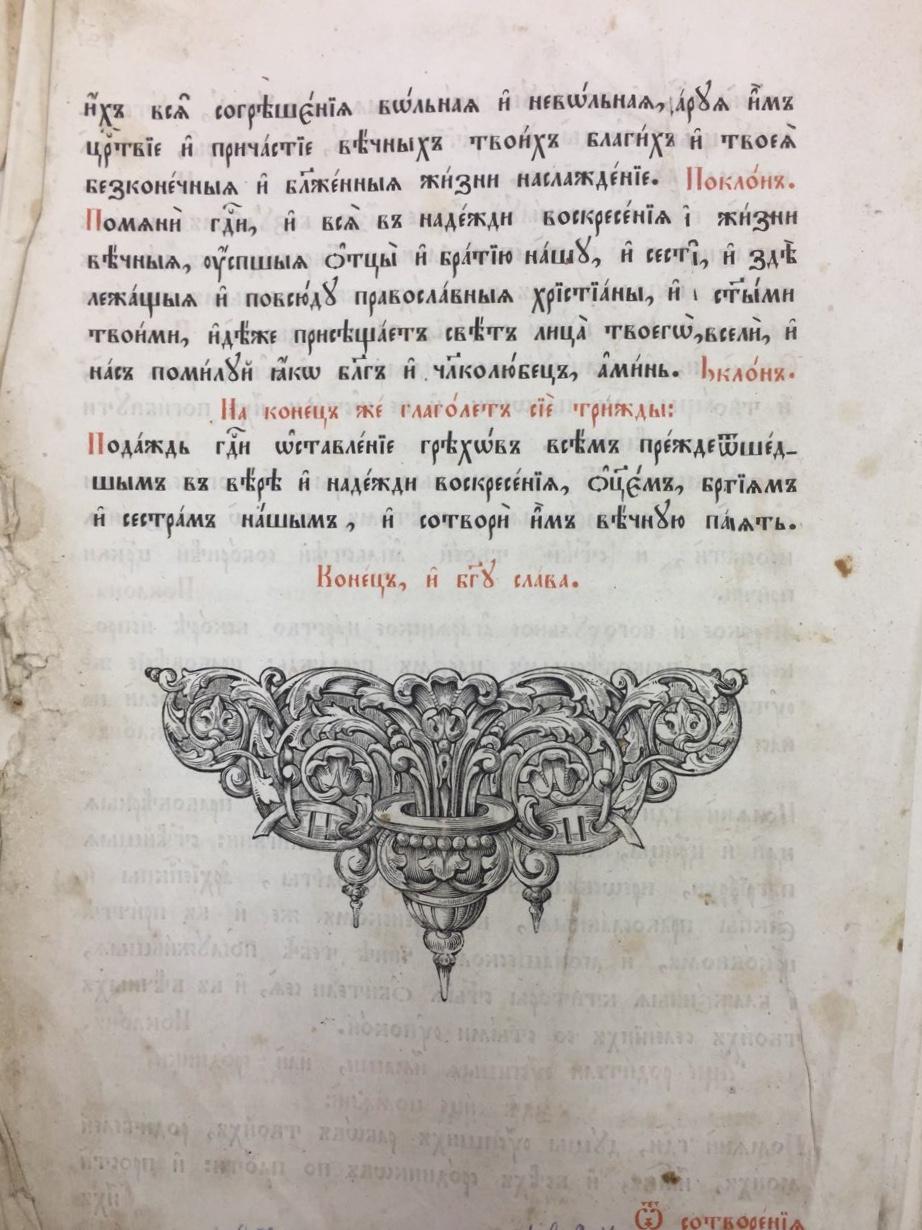 и҆́хъ всѧ̑ согрѣшє́нїѧ вѡ́льнаѧ и҆ невѡ́льнаѧ, да́рꙋѧ и҆̀мъ
црⷭ҇твїе и҆ прича́стїе вѣ́чныхъ твои́хъ благи́хъ и҆ твоеѧ̀
безконе́чныѧ и҆ бл҃же́нныѧ жи́зни наслажде́нїе. Покло́нъ.
Помѧнѝ гдⷭ҇и, и҆ всѧ̀ въ наде́жди воскресе́нїѧ и҆ жи́зни
вѣ́чныѧ, ᲂу҆сѡпшыѧ ѻ҆тцы̀ и҆ бра́тїю на́шꙋ, и҆ сестры̑, и҆ здѣ̀
лежа́щыѧ и҆ повсю́дꙋ правосла́вныѧ хрїстїа́ны, и҆ со ст҃ы́ми
твои́ми, и҆дѣ́же присѣща́етъ свѣ́тъ лица̀ твоегѡ̀, вселѝ, и҆
на́съ поми́лꙋй ꙗ҆́кѡ бл҃гъ и҆ чл҃колю́бецъ, а҆ми́нь. Покло́нъ.
На коне́цъ же глаго́летъ сїѐ три́жды:
Пода́ждь гдⷭ҇и ѡ҆ставле́нїе грѣхѡ́въ всѣ́мъ пре́ждеѿше́д-
шымъ въ вѣ́рѣ и҆ наде́жди воскресе́нїѧ, ѻ҆тцє́мъ, бра́тїѧмъ
и҆ сестра́мъ на́шымъ, и҆ сотворѝ и҆̀мъ вѣ́чнꙋю па́мѧть.
Коне́цъ, и҆ бг҃ꙋ сла́ва.
Ѿ сотворе́нїѧ